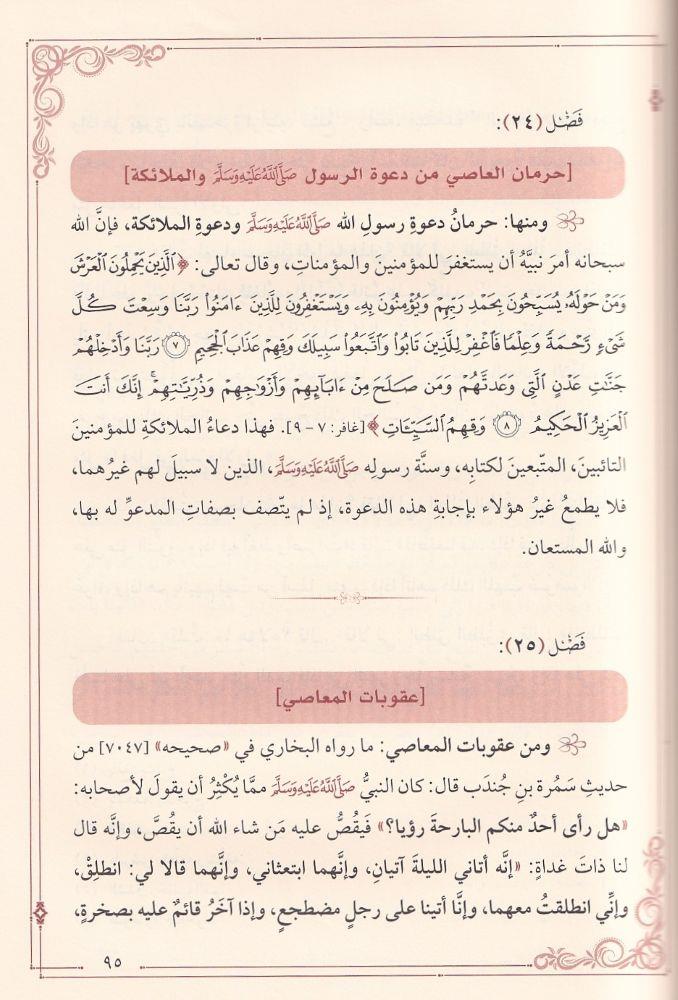 فَصْل (٢٤):
[حرمان العاصي من دعوة الرسول ﷺ والملائكة]
ومنها: حرمانُ دعوةِ رسولِ الله ﷺ ودعوةِ الملائكة، فإنَّ الله
سبحانه أمرَ نبيَّهُ أن يستغفرَ للمؤمنين والمؤمناتِ، وقال تعالى: ﴿ٱلَّذِينَ يَحْمِلُونَ ٱلْعَرْشَ
وَمَنْ حَوْلَهُۥ يُسَبِّحُونَ بِحَمْدِ رَبِّهِمْ وَيُؤْمِنُونَ بِهِۦ وَيَسْتَغْفِرُونَ لِلَّذِينَ ءَامَنُوا۟ رَبَّنَا وَسِعْتَ كُلَّ
شَىْءٍ رَّحْمَةً وَعِلْمًا فَٱغْفِرْ لِلَّذِينَ تَابُوا۟ وَٱتَّبَعُوا۟ سَبِيلَكَ وَقِهِمْ عَذَابَ ٱلْجَحِيمِ ٧ رَبَّنَا وَأَدْخِلْهُمْ
جَنَّٰتِ عَدْنٍ ٱلَّتِى وَعَدتَّهُمْ وَمَن صَلَحَ مِنْ ءَابَآئِهِمْ وَأَزْوَٰجِهِمْ وَذُرِّيَّٰتِهِمْ ۚ إِنَّكَ أَنتَ
ٱلْعَزِيزُ ٱلْحَكِيمُ ٨ وَقِهِمُ ٱلسَّيِّـَٔاتِ﴾ [غافر: ٧ - ٩]. فهذا دعاءُ الملائكةِ للمؤمنينَ
التائبينَ، المتّبعينَ لكتابِه، وسنَّة رسولِه ﷺ، الذين لا سبيلَ لهم غيرُهما،
فلا يطمعُ غيرُ هؤلاء بإجابةِ هذه الدعوة، إذ لم يتّصف بصفاتِ المدعوِّ له بها،
والله المستعان.
فَصْل (٢٥):
[عقوبات المعاصي]
ومن عقوبات المعاصي: ما رواه البخاري في «صحيحه» [٧٠٤٧] من
حديثِ سَمُرة بنِ جُندَب قال: كان النبيُّ ﷺ ممَّا يُكْثِرُ أن يقولَ لأصحابه:
«هل رأى أحدٌ منكم البارحةَ رؤيا؟» فَيَقُصُّ عليه مَن شاء الله أن يقُصَّ، وإنَّه قال
لنا ذاتَ غداةٍ: «إنَّه أتاني الليلةَ آتيانِ، وإنَّهما ابتعثاني، وإنَّهما قالا لي: انطلِقْ،
وإنِّي انطلقتُ معهما، وإنَّا أتينا على رجلٍ مضطجعٍ، وإذا آخَرُ قائمٌ عليه بصخرةٍ،
٩٥